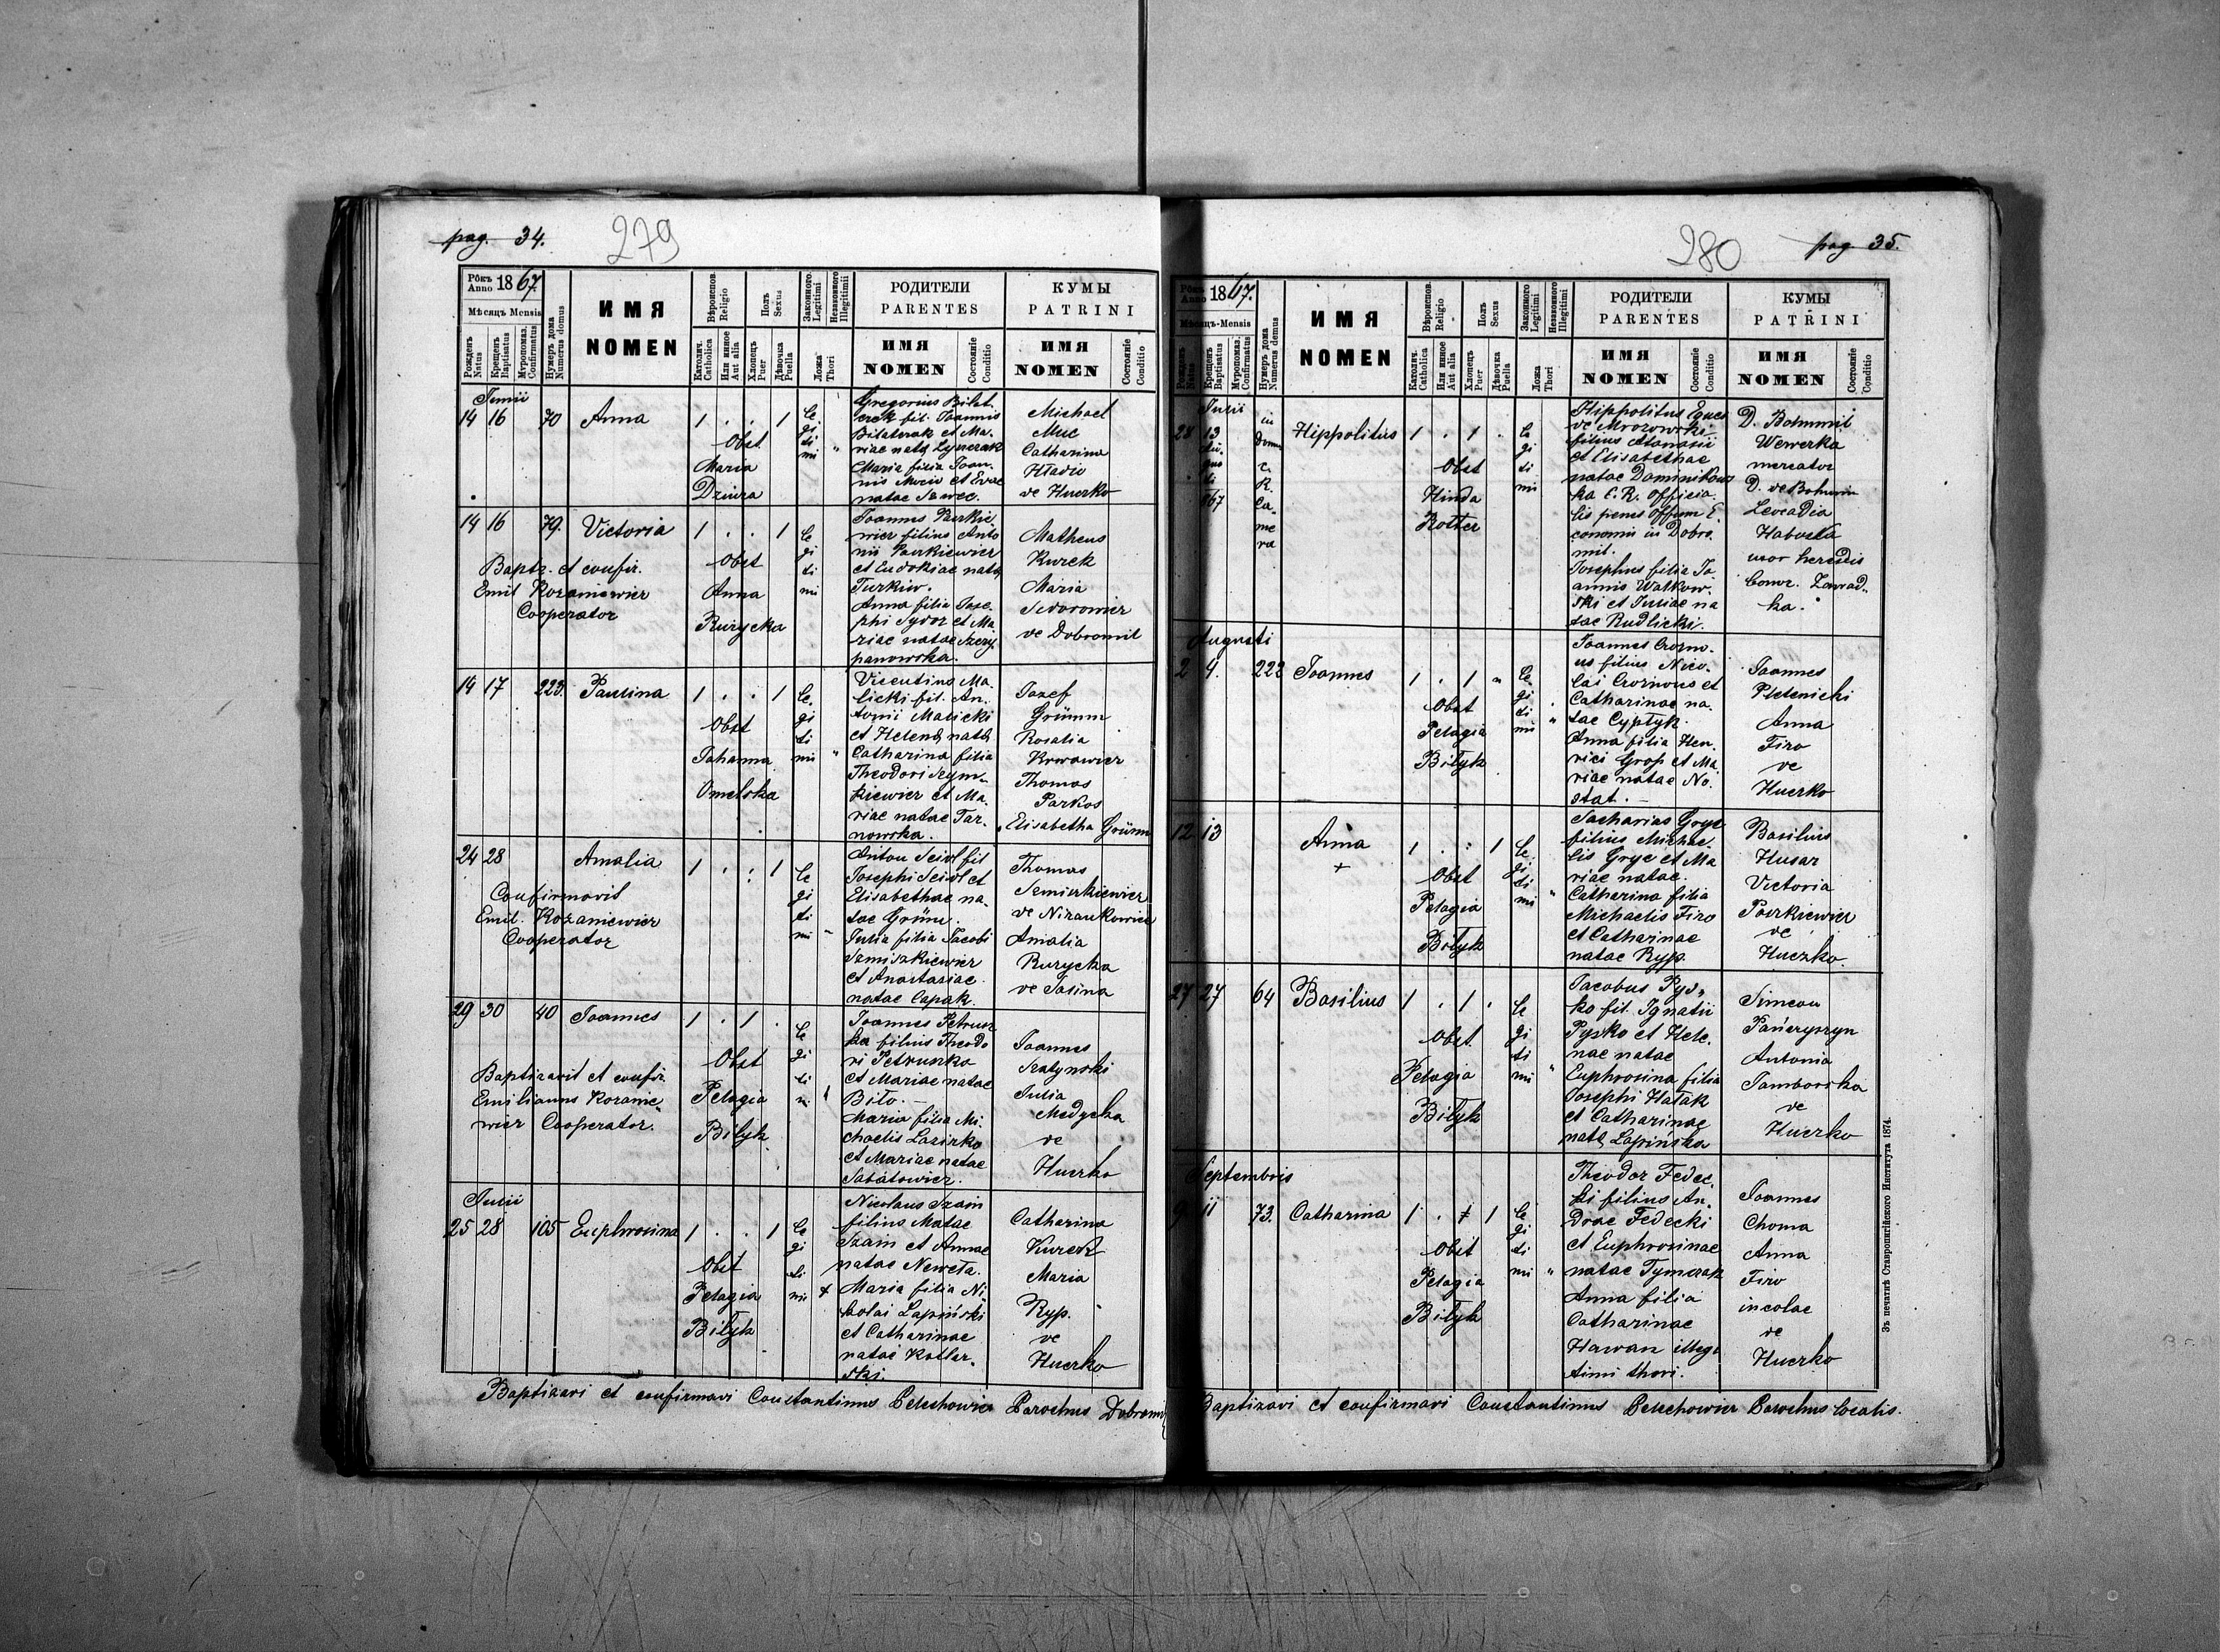 pag. 34.
279
Рôкъ Anno 1867.
Мѣсяцъ Mensis
Рожденъ Natus
Крещенъ Baptisatus
Мѵропомаз. Confirmatus
Нумеръ дома Numerus domus
ИМЯ
NOMEN
Вѣроиспов. Religio
Католич. Catholica
Или инное Aut alia
Полъ Sexus
Хлопецъ Puer
Дѣвочка Puella
Законного Legitimi
Незаконного Illegitimi
Ложа Thori
РОДИТЕЛИ
PARENTES
ИМЯ
NOMEN
Состояніе Conditio
КУМЫ
PATRINI
ИМЯ
NOMEN
Состояніе Conditio
Junii
14 16 70 Anna 1 . . 1
Obst
Maria
Dziura
le
gi
ti
mi
Gregorius
fil. Joannis
et Ma-
riae
Maria filia Joan-
nis et Evae
natae
Michael
Muc
Catharina
de Huczko
14 16 79. Victoria 1 . . 1
Baptz. et confir.
Emil Kozaniewicz
Cooperator
Obst
Anna
Rurycka
le
gi
ti
mi
Joannes Paszkie
wicz filius Anto
nii Paszkiewicz
et Eudokiae natae
Turkiw.
Anna filia Jose-
phi et Ma
riae natae Szczy
panowska.
Matheus
Kurek
Maria
de Dobromil
14 17 223. Paulina 1 . . 1
Obst
Johanna
Omelska
le
gi
ti
mi
Vicentius Ma-
licki fil. An-
tonii Malicki
et Helenae natae
Catharina filia
Theodori Szym-
kiewicz et Ma-
riae natae Tar-
nowska.
Jozef
Grümm
Rosalia
Thomas
Parkos
Elisabetha Grümm
24 28 Amalia 1 . : 1
Confirmavit
Emil. Kozaniewicz
Cooperator
le
gi
ti
mi
Anton Seidl fil
Josephi Seidl et
Elisabethae na-
tae Grüm.
Julia filia Jacobi
Szmiszkiewicz
et Anastasiae
natae Capak.
Thomas
de Nizankowice
Amalia
Rurycka
de Sosina
29 30 40 Joannes 1 . 1 .
Baptizavit et confir.
Emilianus Kozanie-
wicz Cooperator.
Obst
Pelagia
Bilyk
le
gi
ti
Joannes Petrusz
ka filius Theodo
ri Petruszka
et Mariae natae
Bilo.
Maria filia Mi-
chaelis Lazirko
et Mariae natae
Joannes
Julia
Medycka
de
Huczko
Julii
25 28 105 Euphrosina 1 . . 1
Obst
Pelagia
Bilyk
le
gi
ti
mi
Nicolaus Szain
filius Matae
Szain et Annae
natae Neweta.
Maria filia Ni-
kolai Lapiński
et Catharinae
natae Kotlar-
ski.
Catharina
Kurek
Maria
Ryp.
de
Huczko
Baptizavi et confirmavi Constantinus Pelechowicz Parochus Dobromil
280
pag 35.
Рôкъ Anno 1867.
Мѣсяцъ-Mensis
Рожденъ Natus
Крещенъ Baptisatus
Мѵропомаз. Confirmatus
Нумеръ дома Numerus domus
ИМЯ
NOMEN
Вѣроиспов. Religio
Католич. Catholica
Или инное Aut alia
Полъ Sexus
Хлопецъ Puer
Дѣвочка Puella
Законного Legitimi
Незаконного Illegitimi
Ложа Thori
РОДИТЕЛИ
PARENTES
ИМЯ
NOMEN
Состояніе Conditio
КУМЫ
PATRINI
ИМЯ
NOMEN
Состояніе Conditio
Julii
28 13 Hippolitus 1 . 1 .
867
in
domu
c.
R.
Ca-
me
ra
Obst
Hinda
Rotter
le
gi
ti
mi
Hippolitus Eques
de Mrozowski
filius Atanasii
et Elisabethae
natae Dominikows
ka C. R. officia-
lis penes offium E.
conomii in Dobro-
mil.
Josephus filia Jo
annis Walkow-
ski et Juliae na
tae Rudlicki.
D. Bohumil
Wewerka
mercator
Leocadia
uxor heredis
ka.
Augusti
2 4. 222 Joannes 1 . 1
Obst
Pelagia
Bilyk
le
gi
ti
mi
Joannes
us filius Nico-
lai et
Catharinae na-
tae Cyptyk.
Anna filia Hen-
rici Grop et Ma
riae natae No-
stat.
Joannes
Pletenicki
Anna
Firo
de
Huczko
12 13 Anna 1 . : 1
+
Obst
Pelagia
Bilyk
le
gi
ti
mi
Zacharias Gryc
filius Michae-
lis Gryc et Ma
riae natae.
Catharina filia
Michaelis Firo
et Catharinae
natae Ryp.
Basilius
Husar
Victoria
Paszkiewicz
de
Huczko.
27 27 64 Basilius 1 . 1 .
Obst.
Pelagia
Bilyk
le
gi
ti
mi
Jacobus Pys-
ko fil. Ignatii
Pysko et Hele-
nae natae
Euphrosina filia
Josephi Hatak
et Catharinae
natae Lapińska
Simeon
Antonia
Jamborska
de
Huczko
Septembris
9 11 73. Catharina 1 . 1
Obst
Pelagia
Bilyk
le
gi
ti
mi
Theodor Fedec-
ki filius An-
dreae Fedecki
et Euphrosinae
natae Tymczak
Anna filia
Catharinae
Hawan illegi
timi thori.
Joannes
Choma
Anna
Firo
incolae
de
Huczko
Baptizavi et confirmavi Constantinus Pelechowicz Parochus localis.
Зъ печатнѣ Ставропигійского Института 1874.